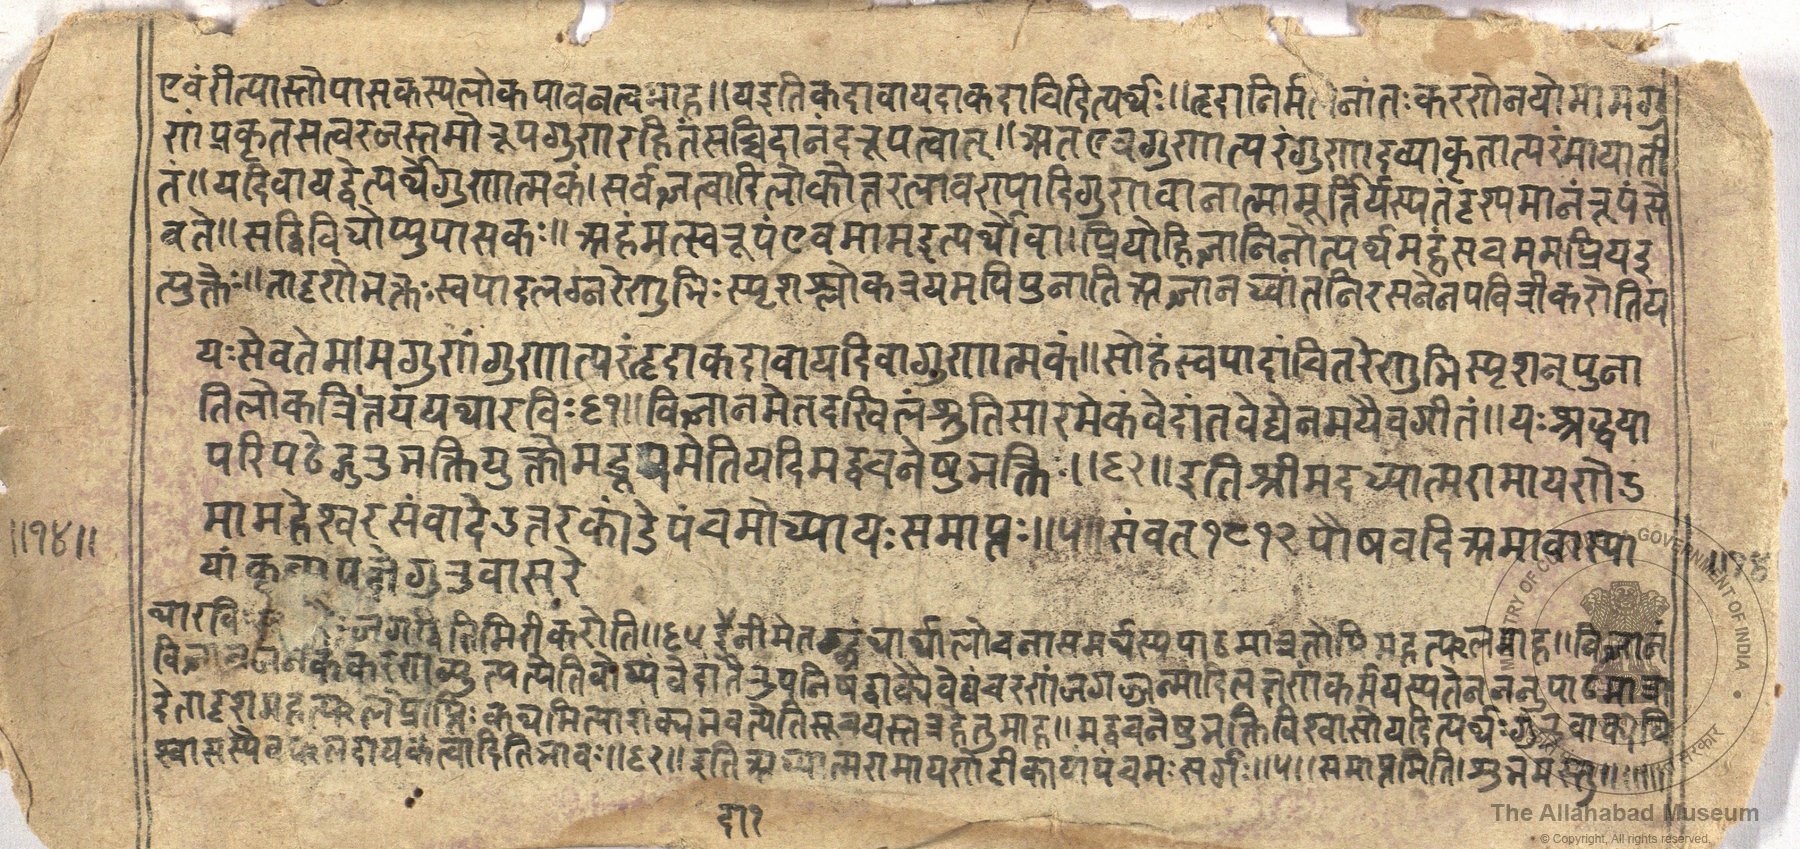 एवंरीत्यास्तोपासकस्यलोकपावनत्वमाह॥यइतिकदावायदाकदाचिदित्यर्थः॥हृदानिर्म नांतःकरणेनयोमामगु
णंप्रकृतसत्वरजस्तमोरूपगुणरहितंसच्चिदानंदरूपत्वात्॥अतएवगुणात्परंगुणादव्याकृतात्परंमायाती
तं॥यदिवायद्वेत्यर्थेगुणात्मकं।सर्वज्ञत्वादिलोकोत्तरलावण्यादिगुणवानात्मामूर्त्तिर्यस्यतंदृश्यमानंरूपंसे
वते॥सद्विविधोप्युपासकः॥अहंमत्स्वरूपंएवमामइत्यर्थोवा।प्रियोहिज्ञानिनोत्यर्थमहंसचममप्रियइ
त्युक्तेः॥तादृशोभक्तःस्वपादलग्नरेणुभिःस्पृशन्लोकत्रयमपिपुनातिअज्ञानध्वांतनिरसनेनपवित्रीकरोतिय
यःसेवतेमामगुणंगुणात्परंहृदाकदावायदिवागुणात्मकं॥सोहंस्वपादांचितरेणुभिस्पृशन्पुना
तिलोकत्रितयंयथारविः६१॥विज्ञानमेतदखिलंश्रुतिसारमेकंवेदांतवेद्येनमयैवगीतं॥यःश्रद्धया
परिपठेद्गुरुभक्तियुक्तोमद्रूपमेतियदिमद्वचनेषुभक्तिः॥६२॥इतिश्रीमदध्यात्मरामायणेउ
मामहेश्वरसंवादेउत्तरकांडेपंचमोध्यायःसमाप्तः॥५॥संवत्१८१२पौषवदिअमावास्या
यांकृष्णपक्षेगुरुवासरे
थारवि जगद्वितिमिरीकरोति॥६५इनीमेतग्रंथार्थालोचनासमर्थस्यपाठमात्रतोपिमहत्फलमाह॥विज्ञानं
विज्ञानजनकंकरणव्युत्पत्येतिबोध्यंवेदांतैरुपनिषद्वाक्यैर्वेद्यंचरणंजगज्जन्मादिलक्षणंकर्मयस्यतेनननुपाठमात्रा
देतादृशमहत्फलप्राप्तिःकथमित्याशंक्यभवत्येतिसूचयस्तत्रहेतुमाह॥मद्वचनेषुभक्तिर्विश्वासोयदित्यर्थःगुरुवाक्यवि
श्वासस्यैवफलदायकत्वादितिभावः॥६२॥इतिअध्यात्मरामायणटीकायांपंचमःसर्गः॥५॥समाप्तमिति।शुभमस्तु॥ः॥॥
॥१४॥
॥१४
The Allahabad Museum
© Copyright, All rights reserved.